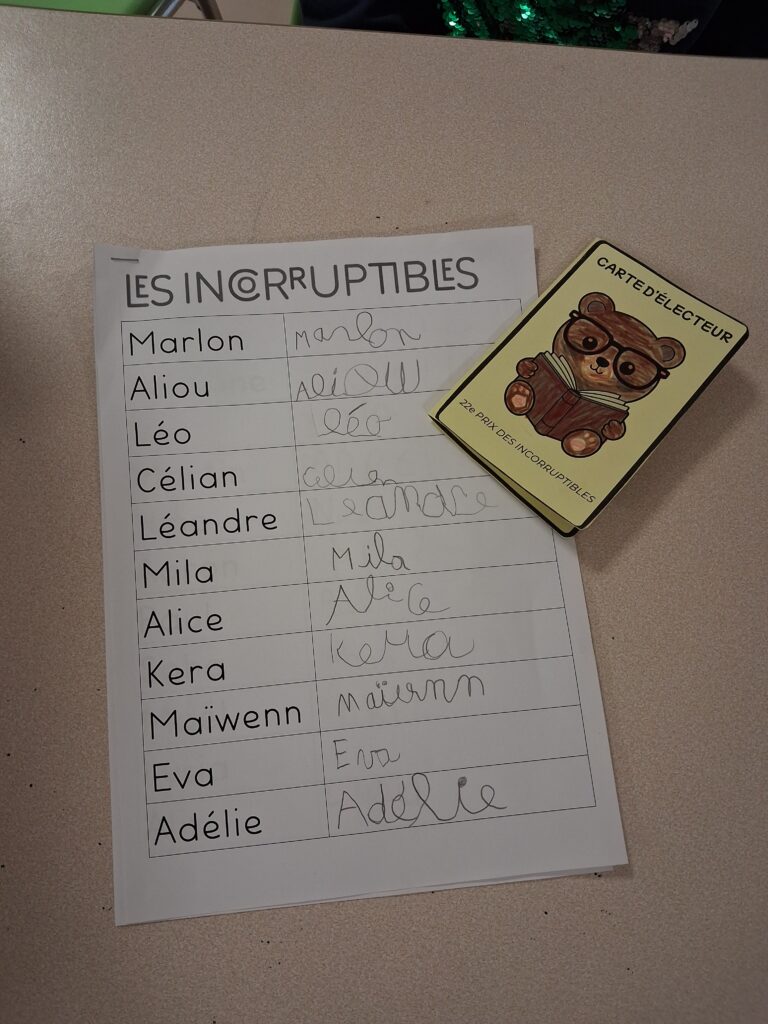 LES INCORRUPTIBLES
Marlon Marlon
Aliou Aliou
Léo léo
Célian Célian
Léandre Léandre
Mila Mila
Alice Alice
Kera Kera
Maïwenn Maïwenn
Eva Eva
Adélie Adélie
CARTE D'ÉLECTEUR
22e PRIX DES INCORRUPTIBLES